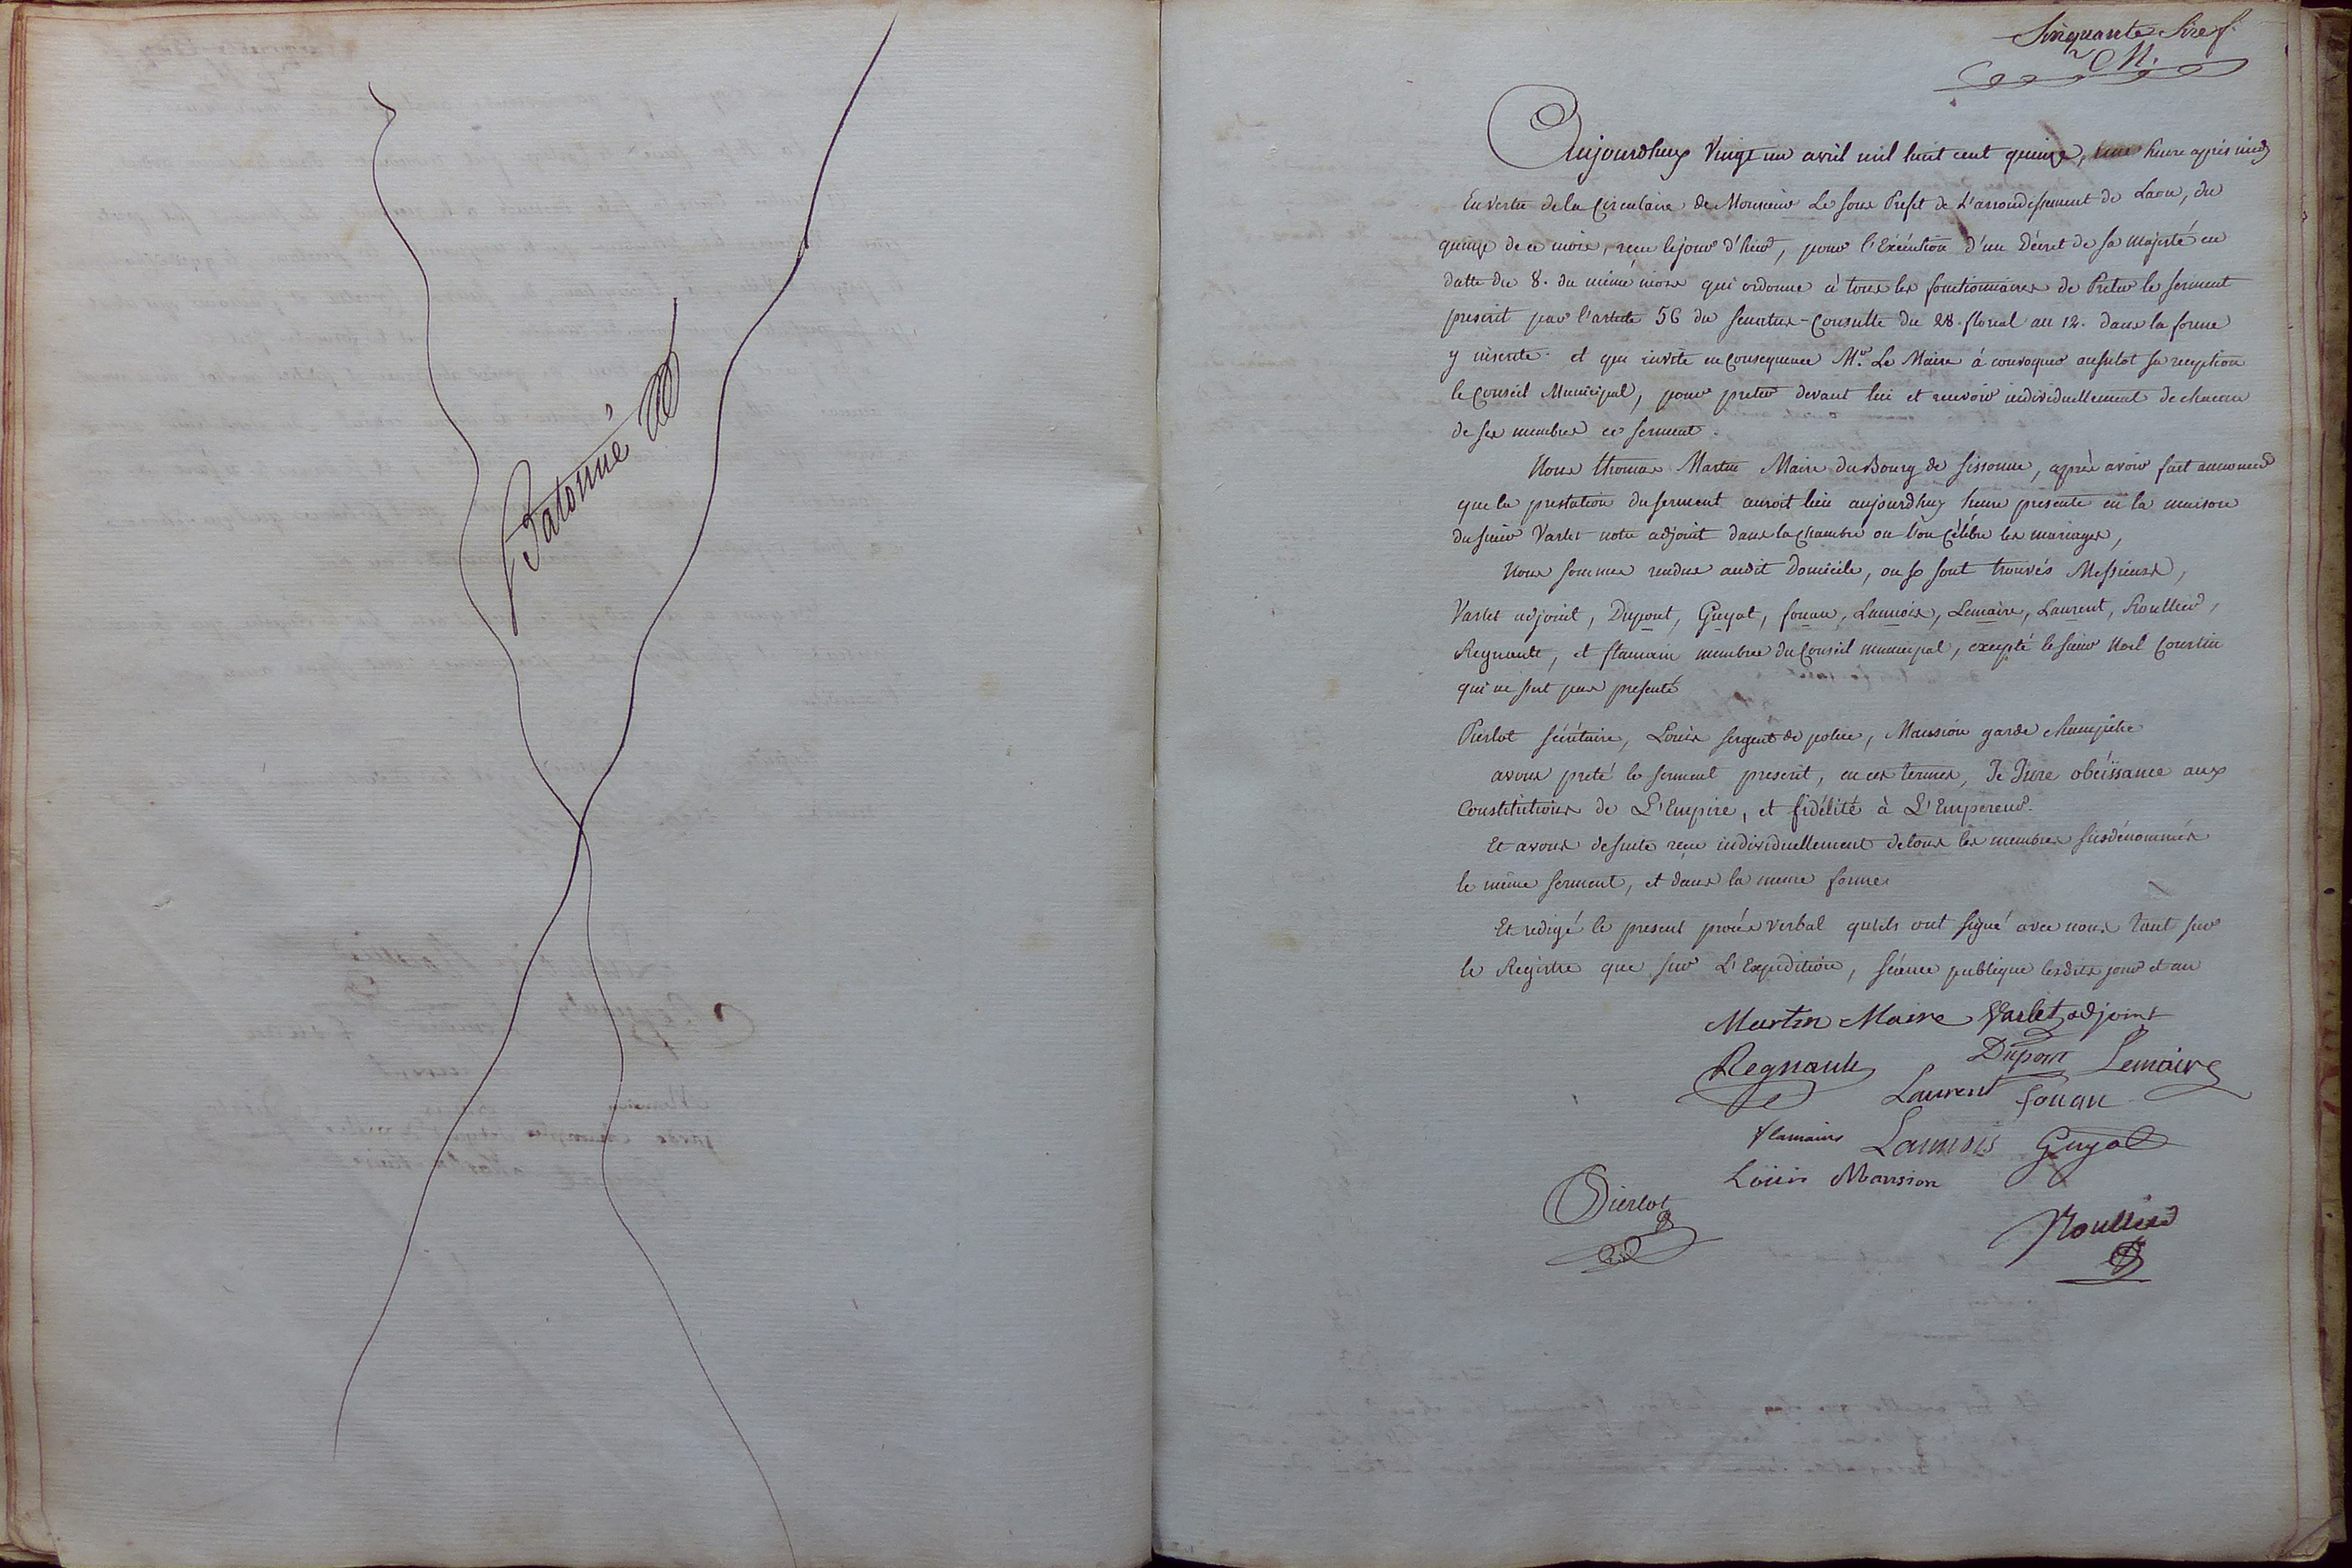 Batonné
Sinquante Sixe f.
M.
Aujourdhuy Vingt un avril mil huit cent quinze, une heure après midy
En vertu de la Circulaire de Monsieur Le Sous Prefet de L'arrondissement de Laon, du
quinze de ce mois, reçu le jour d'hier, pour l'Exécution d'un Décret de Sa Majesté en
datte du 8. du même mois qui ordonne à tous les fonctionnaires de Preter le serment
prescrit par l'article 56 du Senatus-Consulte du 28. floréal an 12. dans la forme
y inserite. et qui invite en Consequence Mr. Le Maire à convoquer aussitot sa reception
le Conseil Municipal, pour preter devant lui et recevoir individuellement de chacun
de ses membres ce serment.
Nous thomas Martin Maire du Bourg de Sissonne, après avoir fait annoncer
que la prestation du serment auroit lieu aujourdhuy heure presente en la maison
du sieur Varlet notre adjoint dans la Chambre ou l'on Célébre les mariages,
Nous sommes rendus audit Domicile, ou se sont trouvés Messieurs,
Varlet adjoint, Dupont, Guyot, fouan, Lannois, Lemaire, Laurent, Roullier,
Regnault, et flamain membres du Conseil municipal, excepté le sieur Noel Courtin
qui ne s'est pas presenté
Pierlot sécrétaire, Louis sergent de police, Mansion garde champêtre
avons preté le serment prescrit, en ces termes, Je Jure obéissance aux
Constitutions de L'Empire, et fidélité à L'Empereur.
Et avons desuite reçu individuellement de tous les membres susdénommés
le même serment, et dans la meme forme
Et redigé le present procès verbal qu'ils ont signé avec nous tant sur
le Registre que sur L'Expedition, séance publique lesdits jour et an
Martin Maire Varlet adjoint
Regnault Dupont Lemaire
Laurent fouan
flamain Lannois Guyot
Loüis Mansion
Pierlot
Roullier